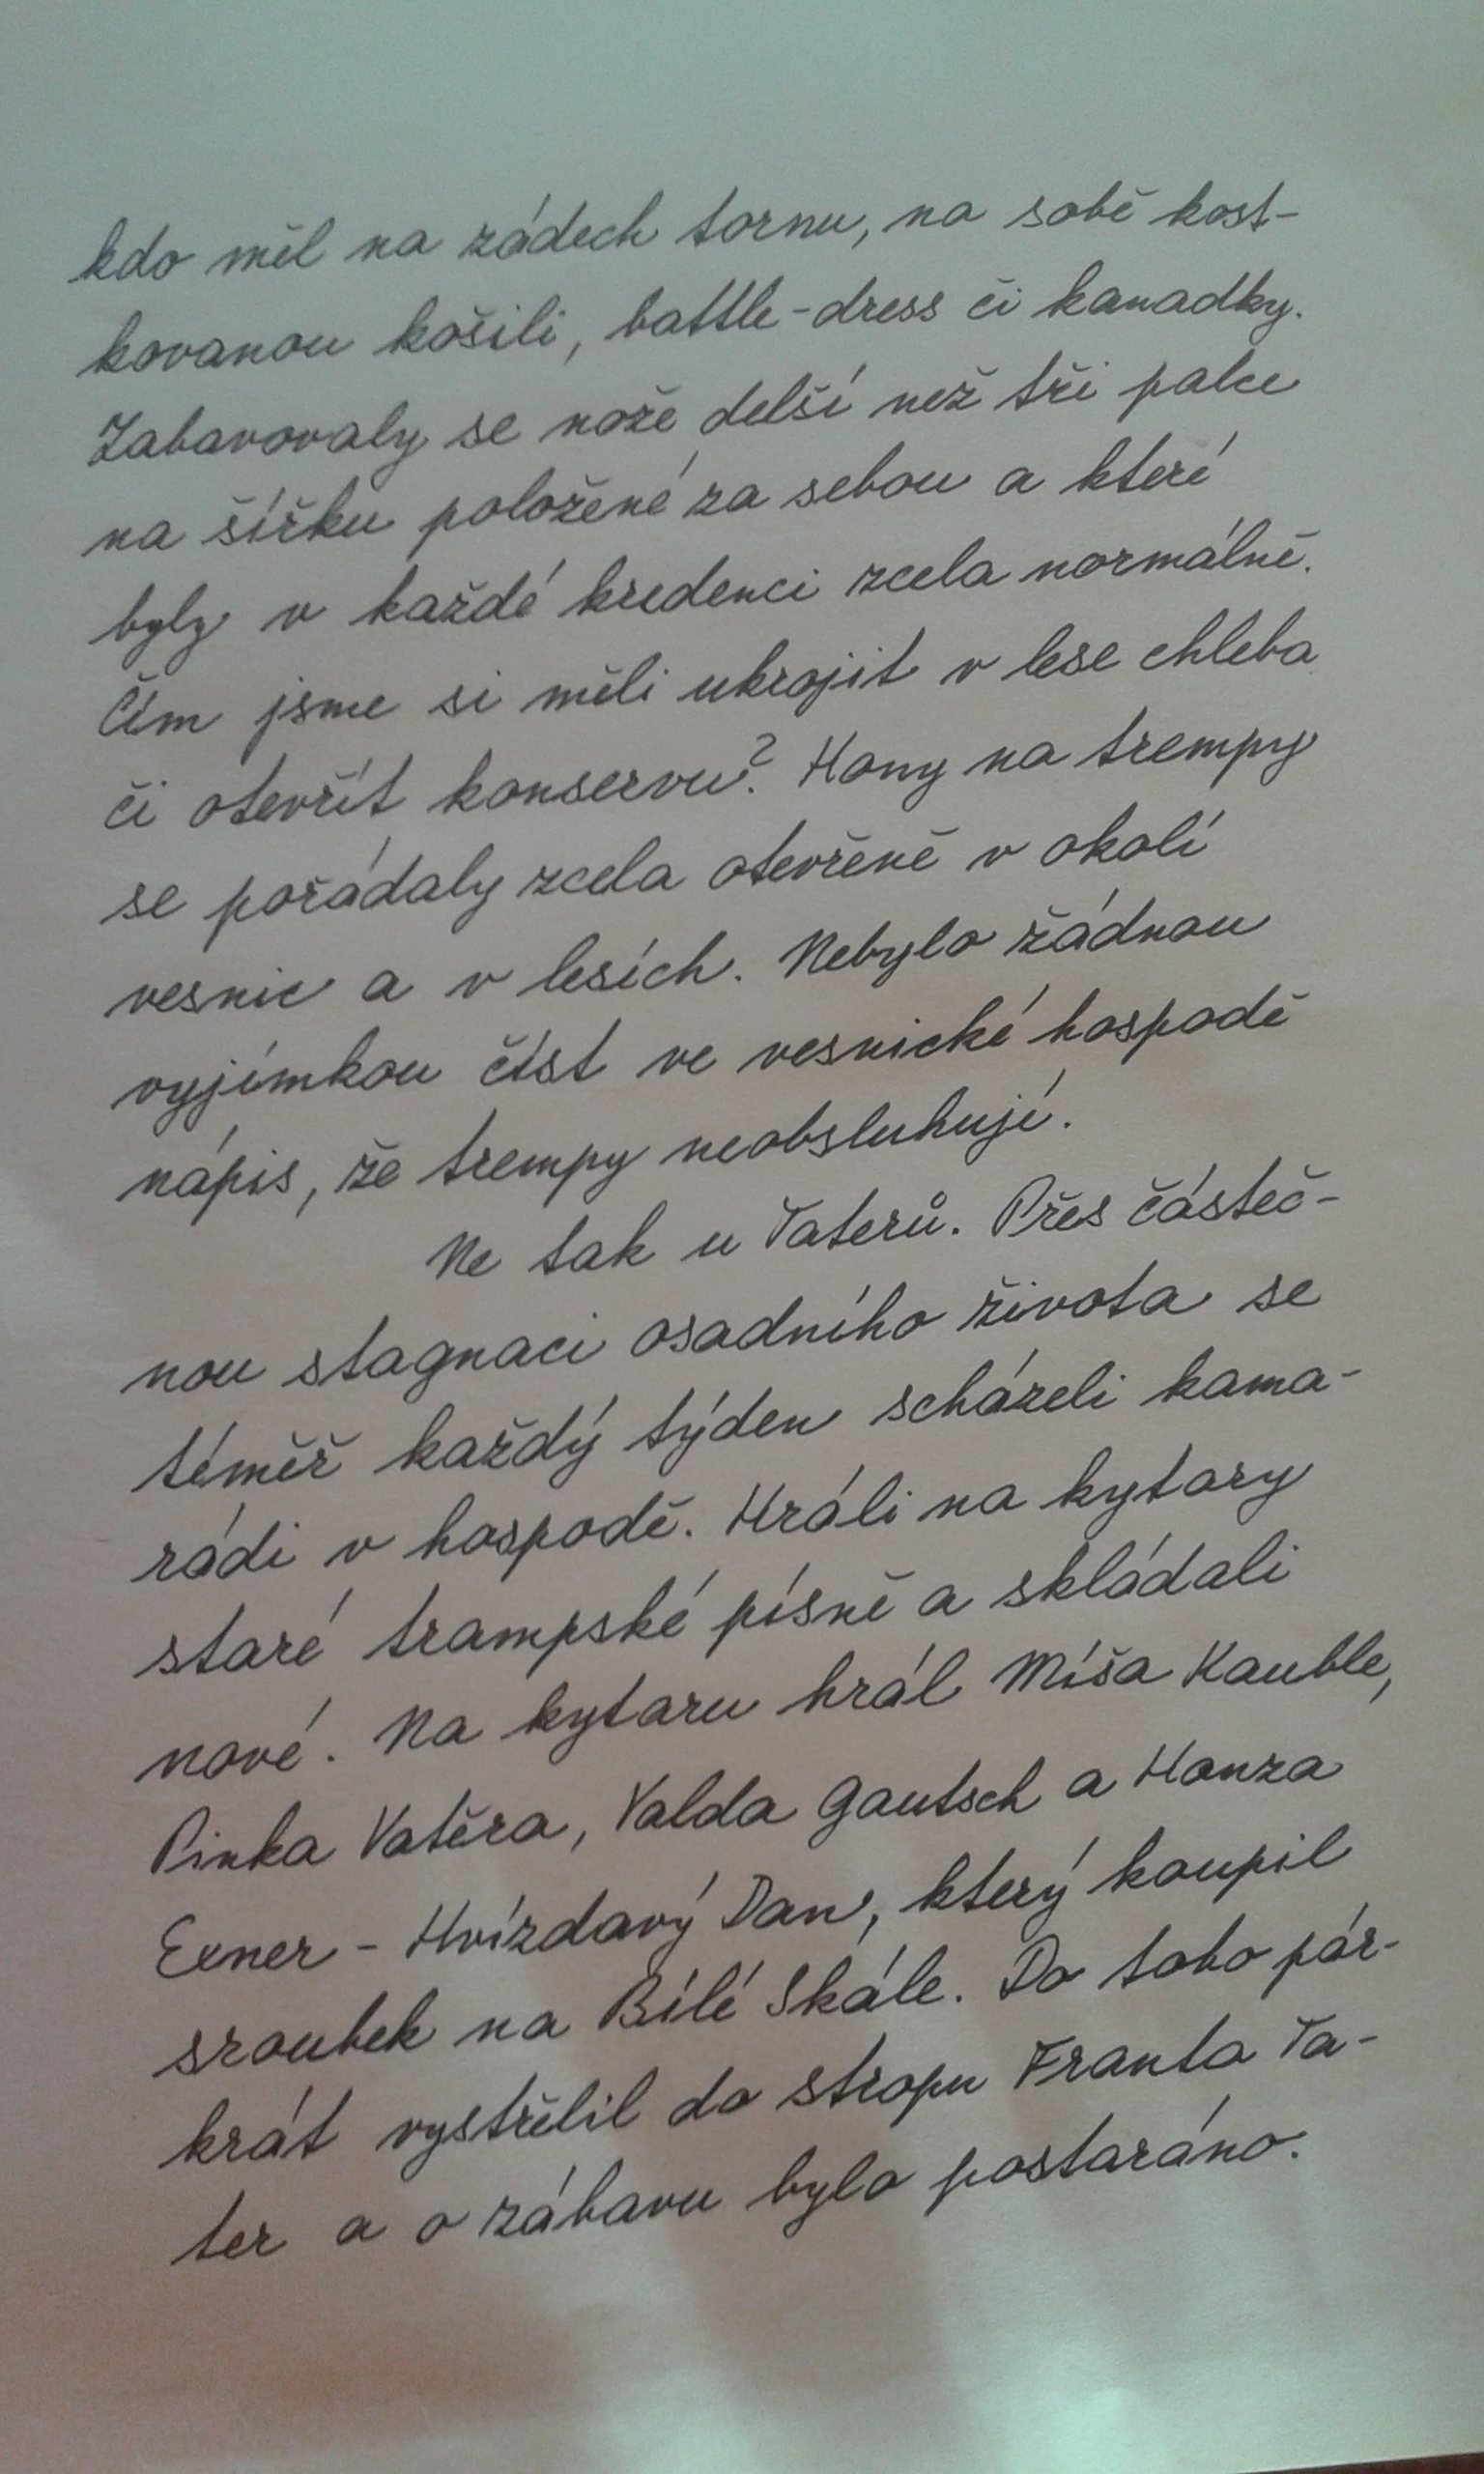 kdo měl na zádech tornu, na sobě kost-
kovanou košili, battle-dress či kanadky.
Zabavovaly se nože delší než tři palce
na šířku položené za sebou a které
byly v každé kredenci zcela normálně.
Čím jsme si měli ukrojit v lese chleba
či otevřít konservu? Hony na trempy
se pořádaly zcela otevřeně v okolí
vesnic a v lesích. Nebylo žádnou
vyjímkou číst ve vesnické hospodě
nápis, že trempy neobsluhují.
Ne tak u Taterů. Přes částeč-
nou stagnaci osadního života se
téměř každý týden scházeli kama-
rádi v hospodě. Hráli na kytary
staré trampské písně a skládali
nové. Na kytaru hrál Míša Kauble,
Pinka Vatěra, Valda Gautsch a Honza
Exner - Hvízdavý Dan, který koupil
sroubek na Bílé Skále. Do toho pár-
krát vystřelil do stropu Franta Ta-
ter a o zábavu bylo postaráno.